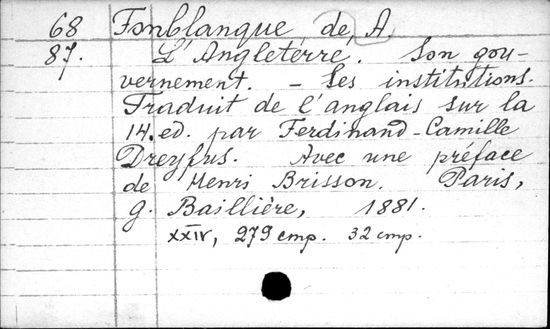 68 Fonblanque de, A
87. L'Angleterre. Son gou-
vernement. - Ses institutions.
Traduit de l'anglais sur la
14.ed. par Ferdinand-Camille
Dreyfus. Avec une préface
de Henri Brisson. Paris,
g. Baillière, 1881.
XXIV, 279 cmp. 32 cmp.